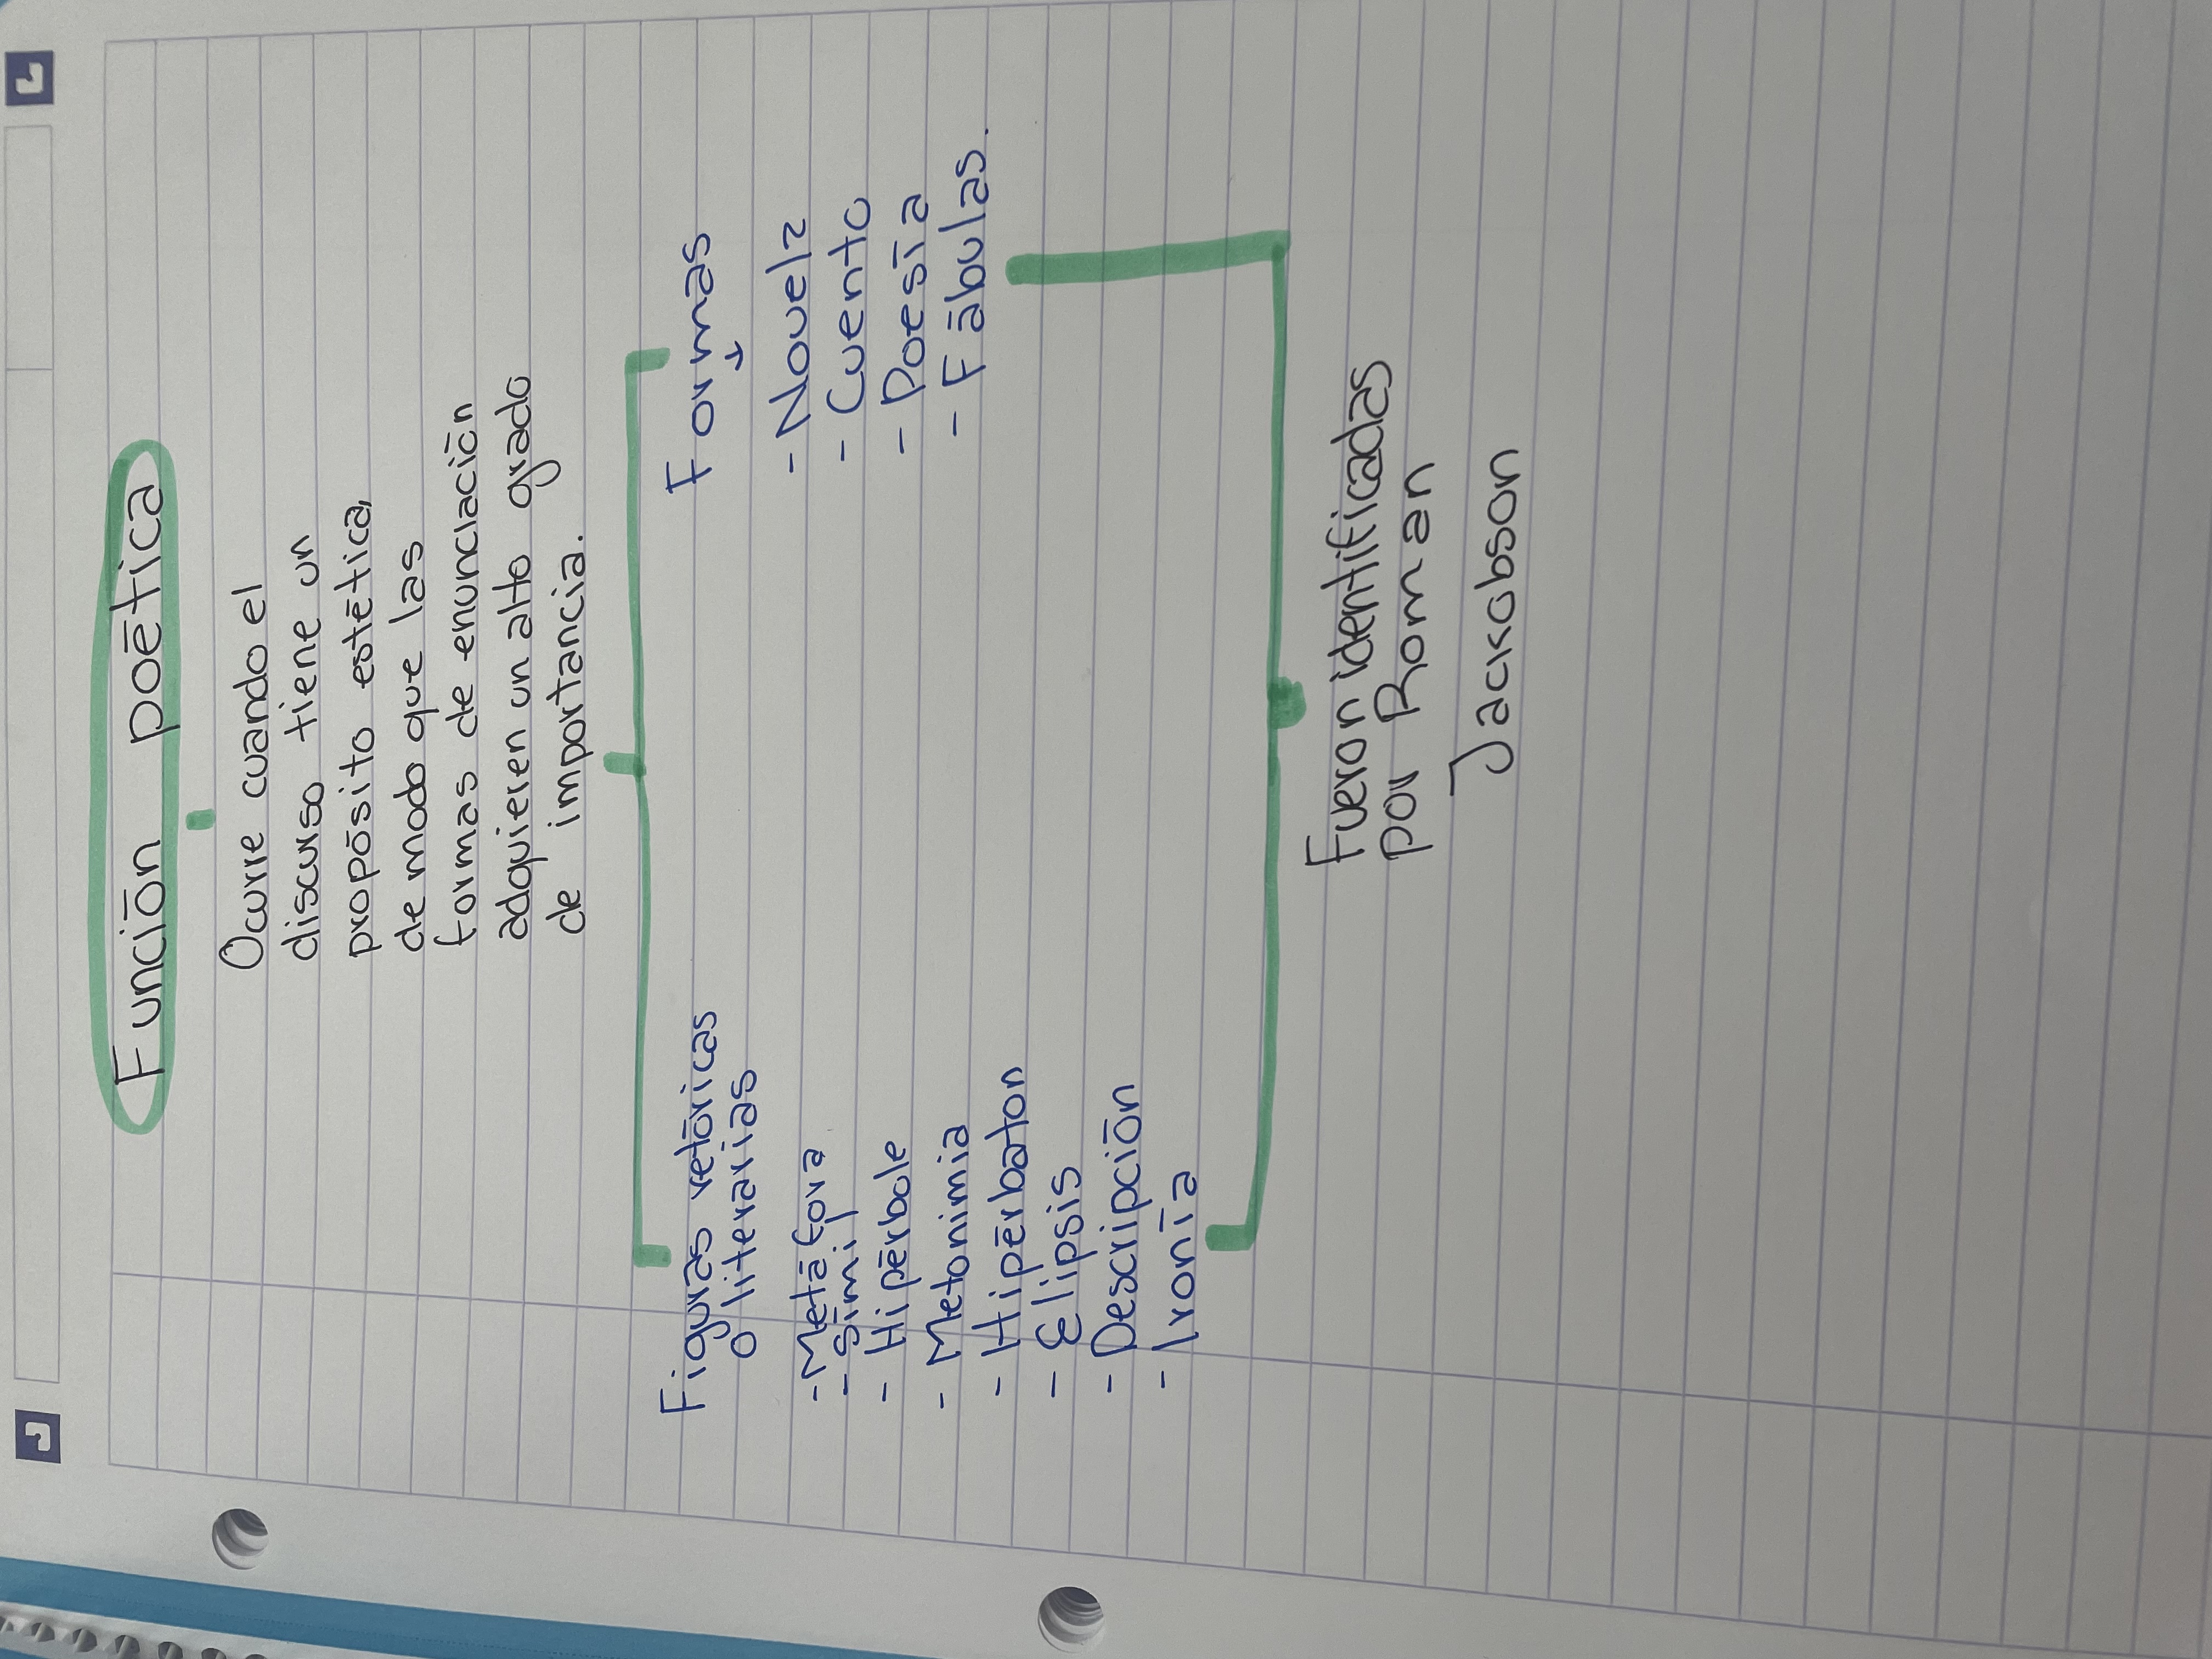 Función poética
Ocurre cuando el
discurso tiene un
propósito estética,
de modo que las
formas de enunciación
adquieren un alto grado
de importancia.
Figuras retóricas
o literarias
-Metáfora
- símil
- Hipérbole
- Metonimia
- Hipérbaton
- Elipsis
- Descripción
- Ironía
Formas
↓
- Novela
- Cuento
- Poesía
- Fábulas.
Fueron identificadas
por Roman
Jackobson